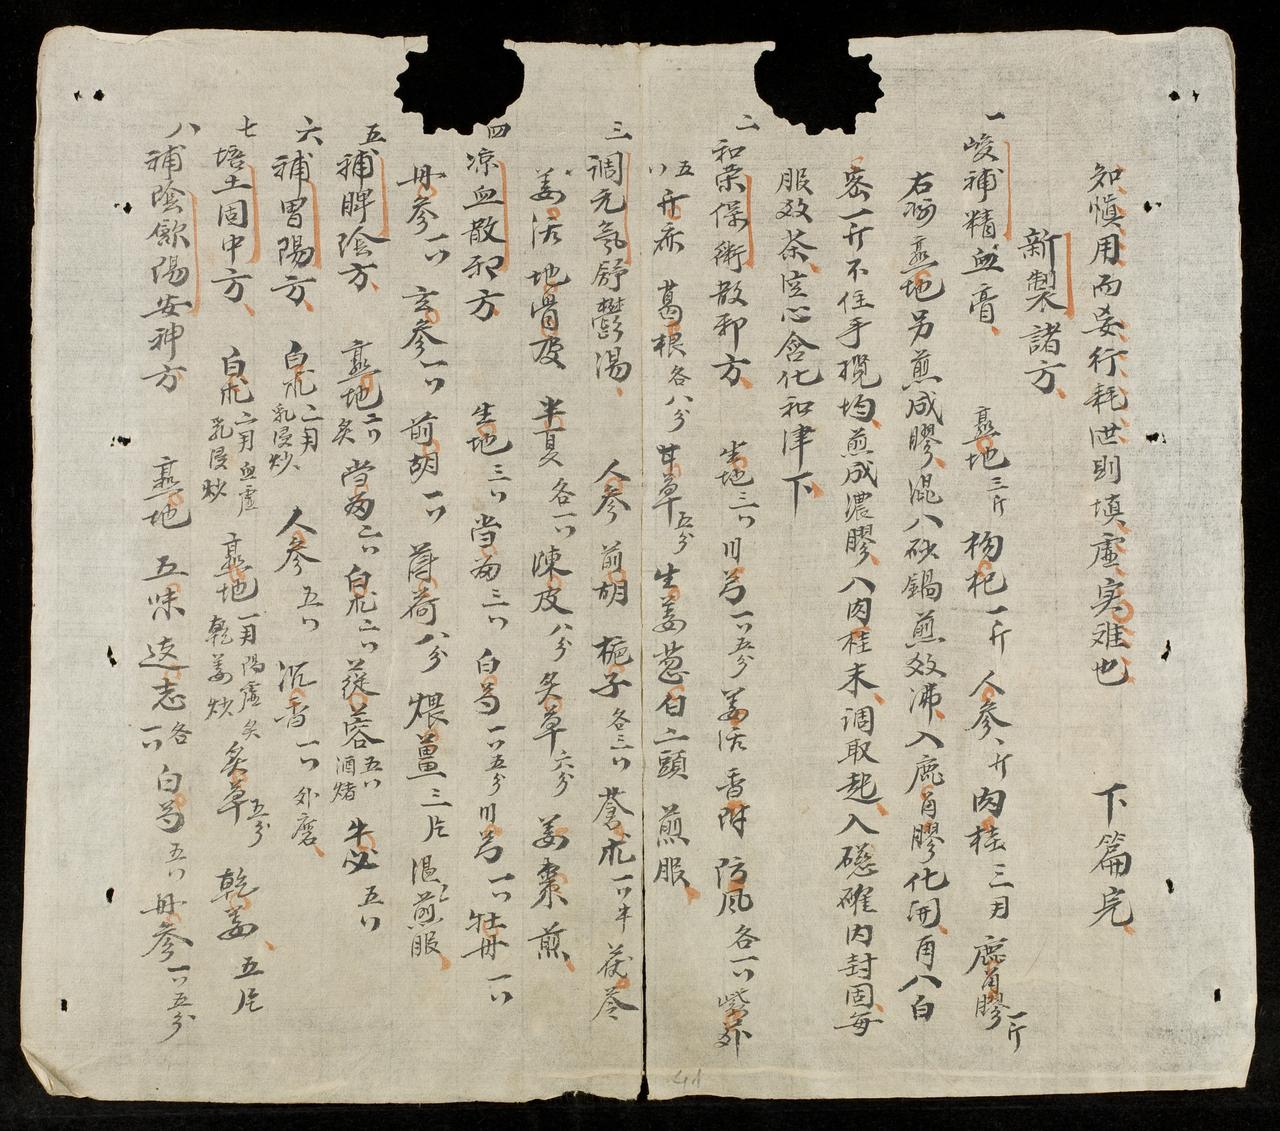 知慎用而妄行耗泄則填虛实难也 下篇完
新製諸方
一 峻補精血膏 熟地三斤 枸杞一斤 人參一斤 肉桂三月 鹿角膠一斤
右將熟地另煎成膠混入砂鍋煎数沸入鹿角膠化開再入白
蜜一斤不住手攪均煎成濃膠入肉桂末調取起入磁確內封固每
服数茶空心含化和津下
二 和荣保衛散邪方 生地三𠆢 川芎一𠆢五分 姜活 香附 防风各一𠆢 紫苏
五𠆢 升麻 葛根各八分 甘草五分 生姜 葱白二頭 煎服
三 調元氣舒鬱湯 人參 前胡 栀子各三𠆢 蒼朮一𠆢半 茯苓
姜活 地骨皮 半夏各一𠆢 陳皮八分 炙草六分 姜棗煎
四 凉血散邪方 生地三𠆢 当歸三𠆢 白芍一𠆢五分 川芎一𠆢 牡丹一𠆢
丹參一𠆢 玄參一𠆢 前胡一𠆢 薄荷八分 煨薑三片 温煎服
五 補脾陰方 熟地二𠆢炙 当歸二𠆢 白朮二𠆢 蓯蓉五𠆢酒焙 牛必五𠆢
六 補胃陽方 白朮二月乳浸炒 人參五𠆢 沉香一𠆢外磨
七 培土固中方 白朮二月血虛乳浸炒 熟地一月陽虛炙乾姜炒 炙草五分 乾姜五片
八 補陰斂陽安神方 熟地 五味 遠志各一𠆢 白芍五𠆢 丹參一𠆢五分
41